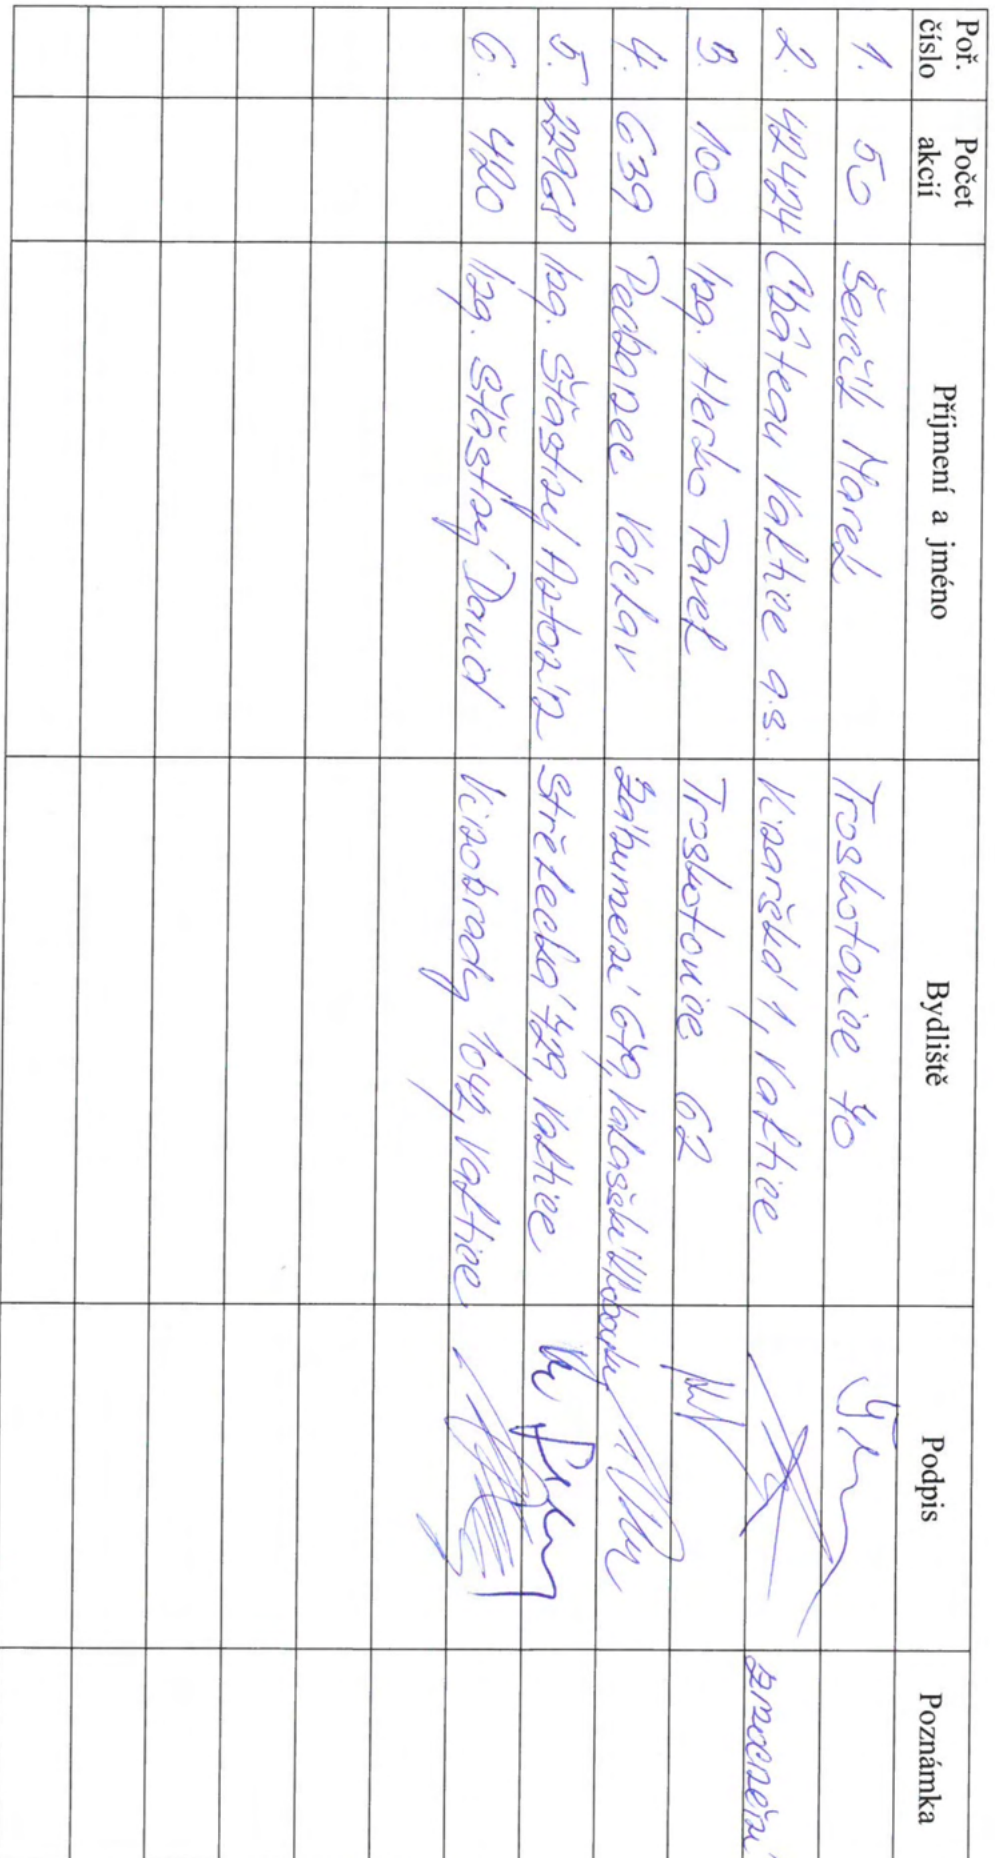 Poř. číslo Počet akcií Příjmení a jméno Bydliště Podpis Poznámka
1. 50 Ševčík Marek Troskotovice 70
2. 42424 Château Valtice a.s. Vinařská 1, Valtice zmocnění
3. 100 Ing. Herko Pavel Troskotovice 62
4. 639 Pechanec Václav Záhumení Valašské Klobouky
5. Ing. Šťastný Antonín Střelecká 729, Valtice
6. 420 Ing. Šťastný David Vinohrady 1042, Valtice